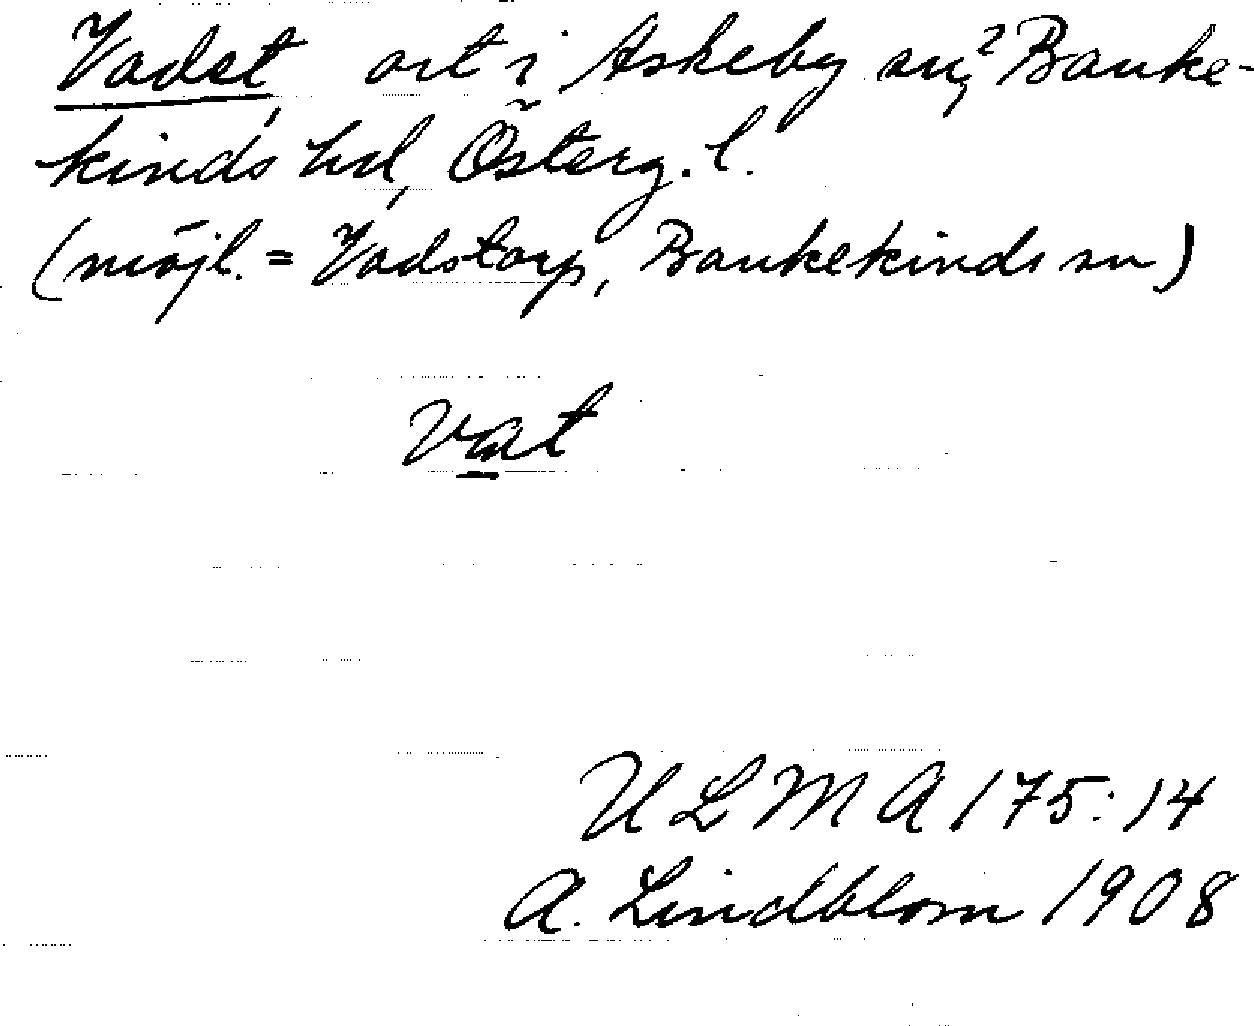 Vadst, ort i Askeby sn,? Banke-
kinds hd, Österg. l.
(möjl. = Vadstorp, Bankekinds sn)
vat
ULMA 175:14
A. Lindblom 1908